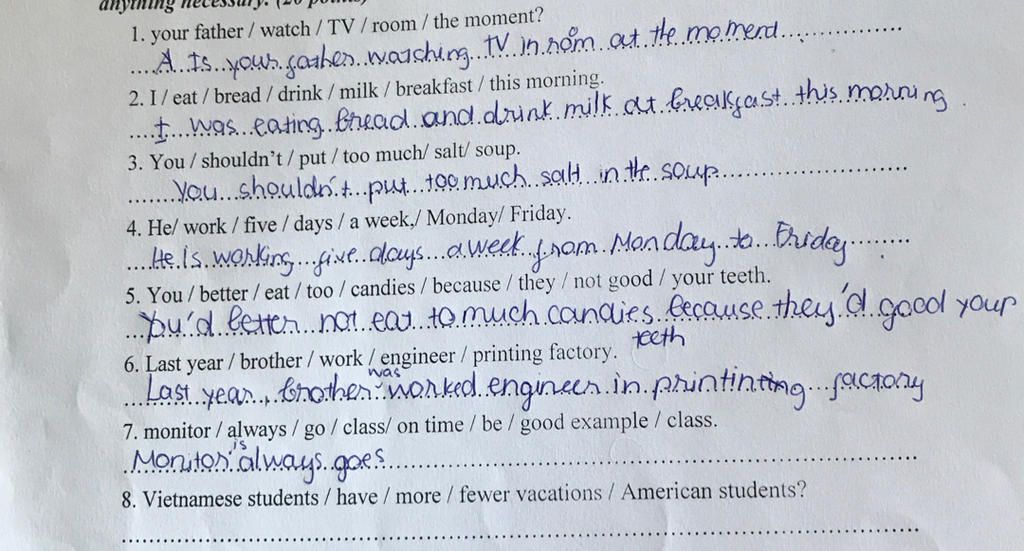 anything necessary. (20 points)
1. your father / watch / TV / room / the moment?
A Is your father watching TV in room at the momend
2. I / eat / bread / drink / milk / breakfast / this morning.
I was eating bread and drink milk at breakfast this morning
3. You / shouldn't / put / too much/ salt/ soup.
You shouldn't put too much salt in the soup
4. He/ work / five / days / a week,/ Monday/ Friday.
He is working five days a week from Monday to Friday
5. You / better / eat / too / candies / because / they / not good / your teeth.
You'd better not eat to much candies because they'd good your
teeth
6. Last year / brother / work / engineer / printing factory.
was
Last year, brother worked engineer in printinting factory
7. monitor / always / go / class/ on time / be / good example / class.
is
Monitor always goes
8. Vietnamese students / have / more / fewer vacations / American students?